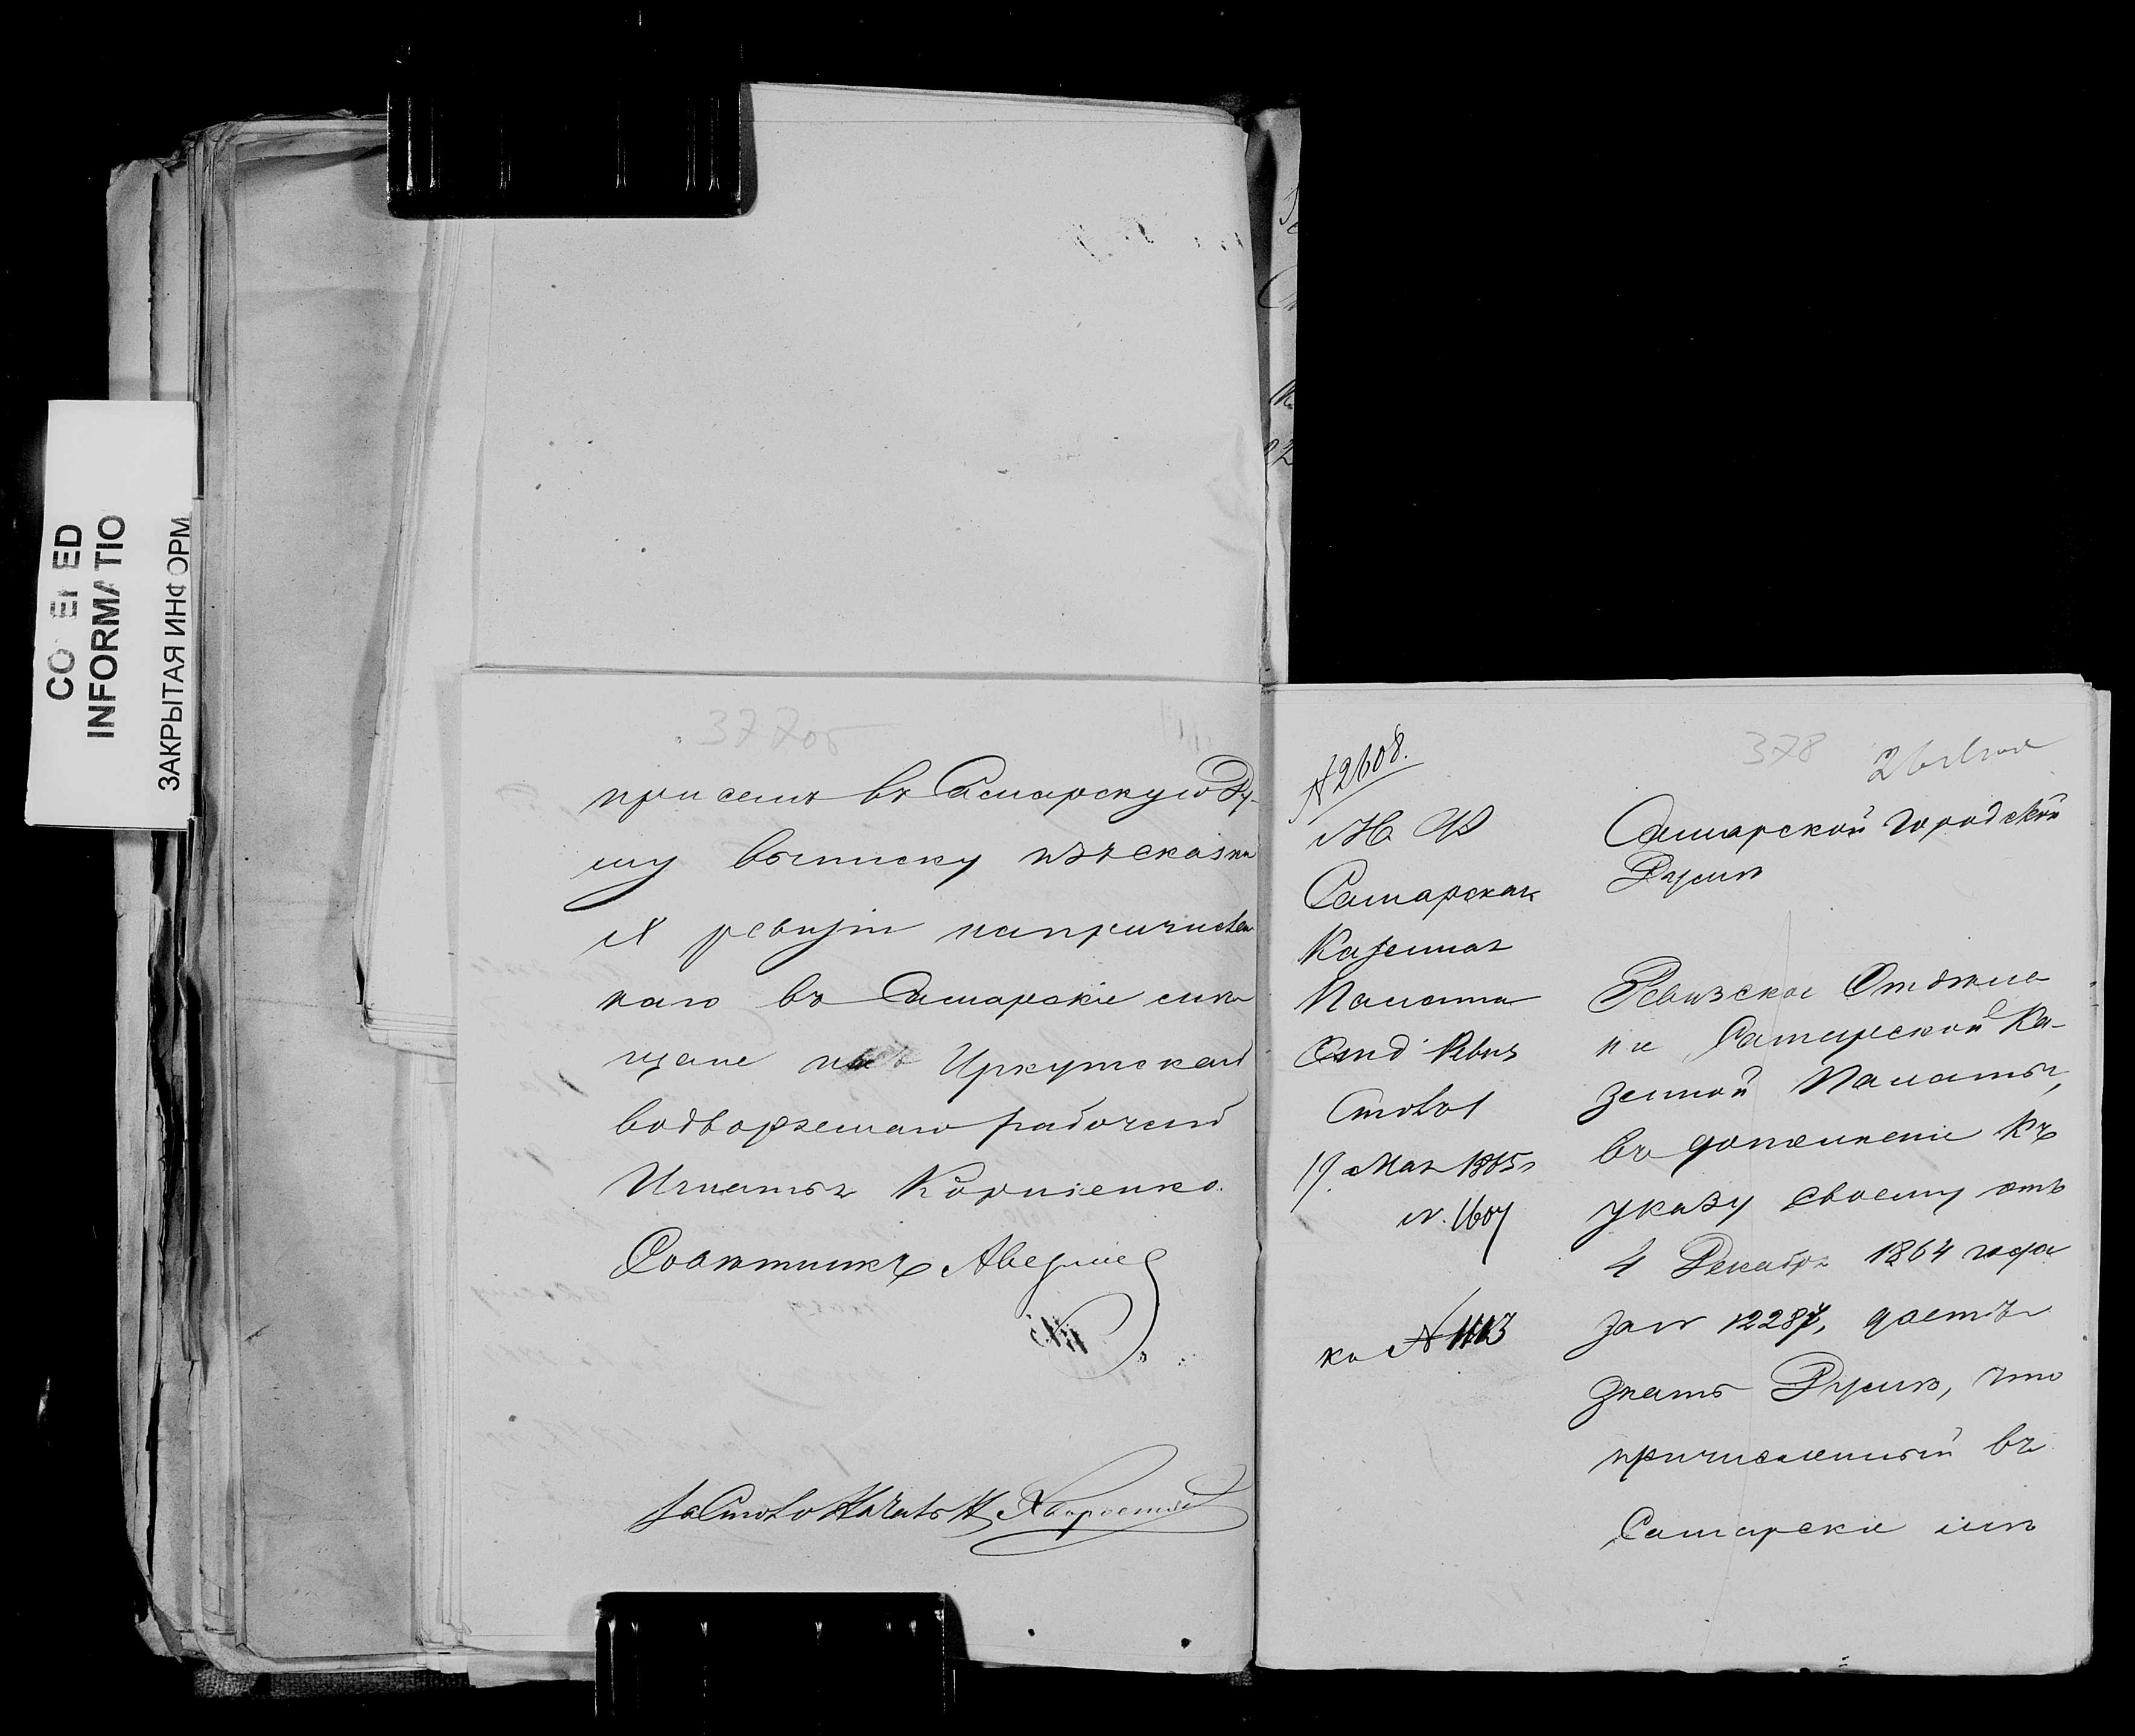 CO ED
INFORMATIO
ЗАКРЫТАЯ ИНФОРМ
377об
при семъ въ Самарскую Ду-
му выписку изъ сказки
X ревизіи на причислен
наго въ Самарскіе мѣ
щане изъ Иркутскаго
водвореннаго рабочаго
Игнатья Корніенко.
Совѣтникъ
За Столонач
378
26 Мая
№ 2608.
М Ф
Самарская
Казенная
Палата
Отд Ревиз
Столъ 1
19 Мая 1865 г
№ 1607
къ № 1113
Самарской Городской
Думѣ
Ревизское Отдѣле
ніе Самарской Ка-
зенной Палаты,
въ дополненіе къ
указу своему отъ
4 Декабря 1864 года
за № 12287, даетъ
знать Думѣ, что
причисленный въ
Самарскіе мѣ